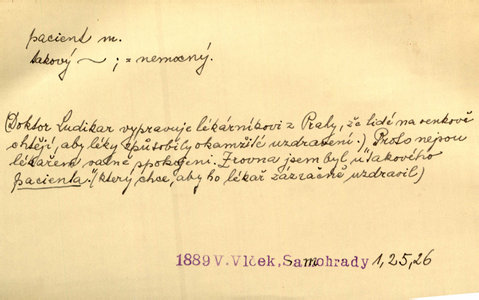 pacient m.
takový ~ ; = nemocný.
(Doktor Ludikar vypravuje lékárníkovi z Prahy, že lidé na venkově
chtějí, aby léky způsobily okamžité uzdravení.) Proto nejsou
lékařem valně spokojeni. Zrovna jsem byl u "takového
pacienta." (který chce, aby ho lékař zázračně uzdravil)
1889 V. Vlček, Samohrady 1,25,26